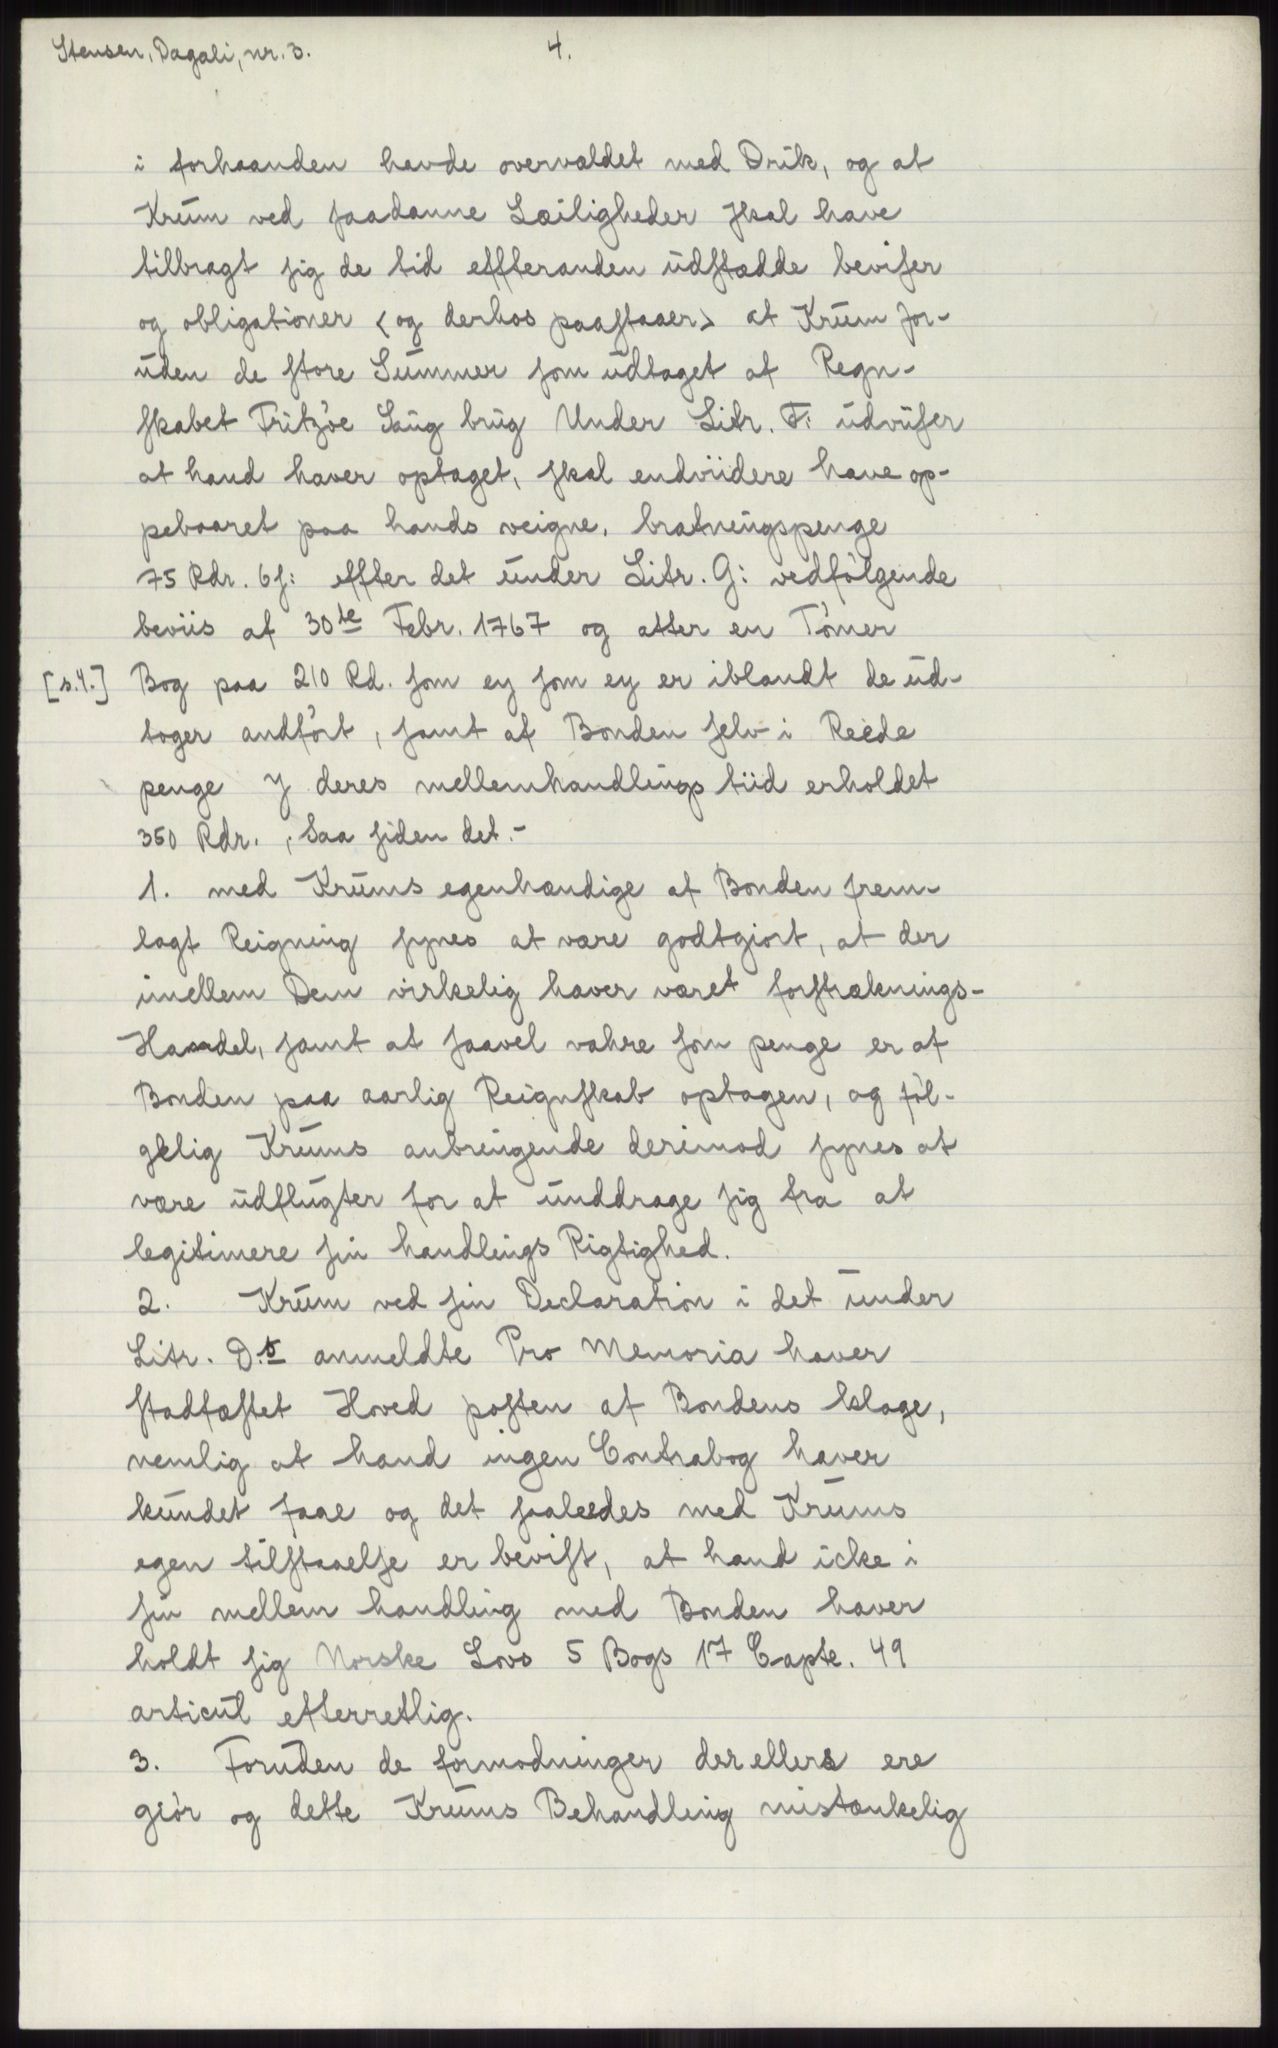 Stensen, Dagali, nr. 3.
4.
i forhaanden havde overvældet med Drik, og at
Krum ved saadanne Læiligheder skal have
tilbragt sig de tid effteranden udstædde beviser
og obligationer < og derhos paastaaer > at Krum for-
uden de store Summer som udtaget af Regn-
skabet Fritzöe Saug brug Under Litr. F: udviiser
at hand haver optaget, skal endviidere have op-
pebaaret paa hands veigne, bratningspenge
75 Rdr. 6 s: effter det under Litr. G: vedfølgende
beviis af 30te Febr. 1767 og atter en Tömer
[s.4.] Bog paa 210 Rd. som ey som ey er iblandt de ud-
toger andført, samt af Bonden selv i Reede
penge J deres mellemhandlings tiid erholdet
350 Rdr. , Saa siden det.-
1. med Krums egenhændige af Bonden frem-
lagt Reigning synes at være godtgiort, at der
imellem Dem virkelig haver været forstræknings-
Handel, samt at saavel vahre som penge er af
Bonden paa aarlig Reignskab optagen, og föl-
gelig Krums anbringende derimod synes at
være udflugter for at unddrage sig fra at
legitimere sin handlings Rigtighed.
2. Krum ved sin Declaration i det under
Litr. D.5 anmeldte Pro Memoria haver
stadfæstet Hoved posten af Bondens klage,
nemlig at hand ingen Contrabog haver
kundet faae og det saaledes med Krums
egen tilstaaelse er bevist, at hand icke i
sin mellem handling med Bonden haver
holdt sig Norske Lovs 5 Bogs 17 Capte. 49
articul efterretlig.
3. Foruden de formodninger der ellers ere
giör og dette Krums Behandling mistænkelig